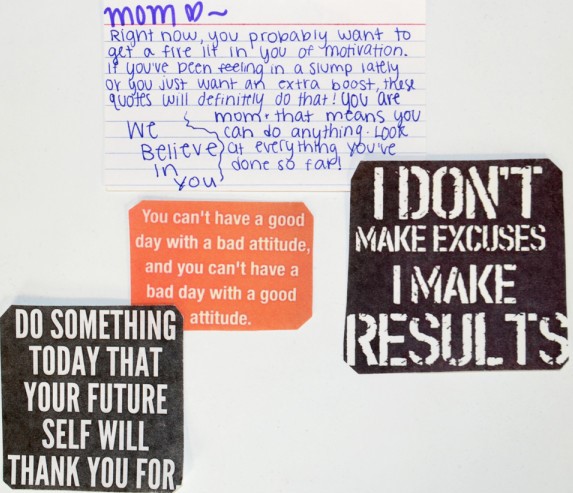 mom ♡~
Right now, you probably want to
get a fire lit in you of motivation.
If you've been feeling in a slump lately
or you just want an extra boost, these
quotes will definitely do that! You are
mom. that means you
can do anything. Look
at everything you've
done so far!
We
Believe
in
you
You can't have a good
day with a bad attitude,
and you can't have a
bad day with a good
attitude.
I DON'T
MAKE EXCUSES
I MAKE
RESULTS
DO SOMETHING
TODAY THAT
YOUR FUTURE
SELF WILL
THANK YOU FOR